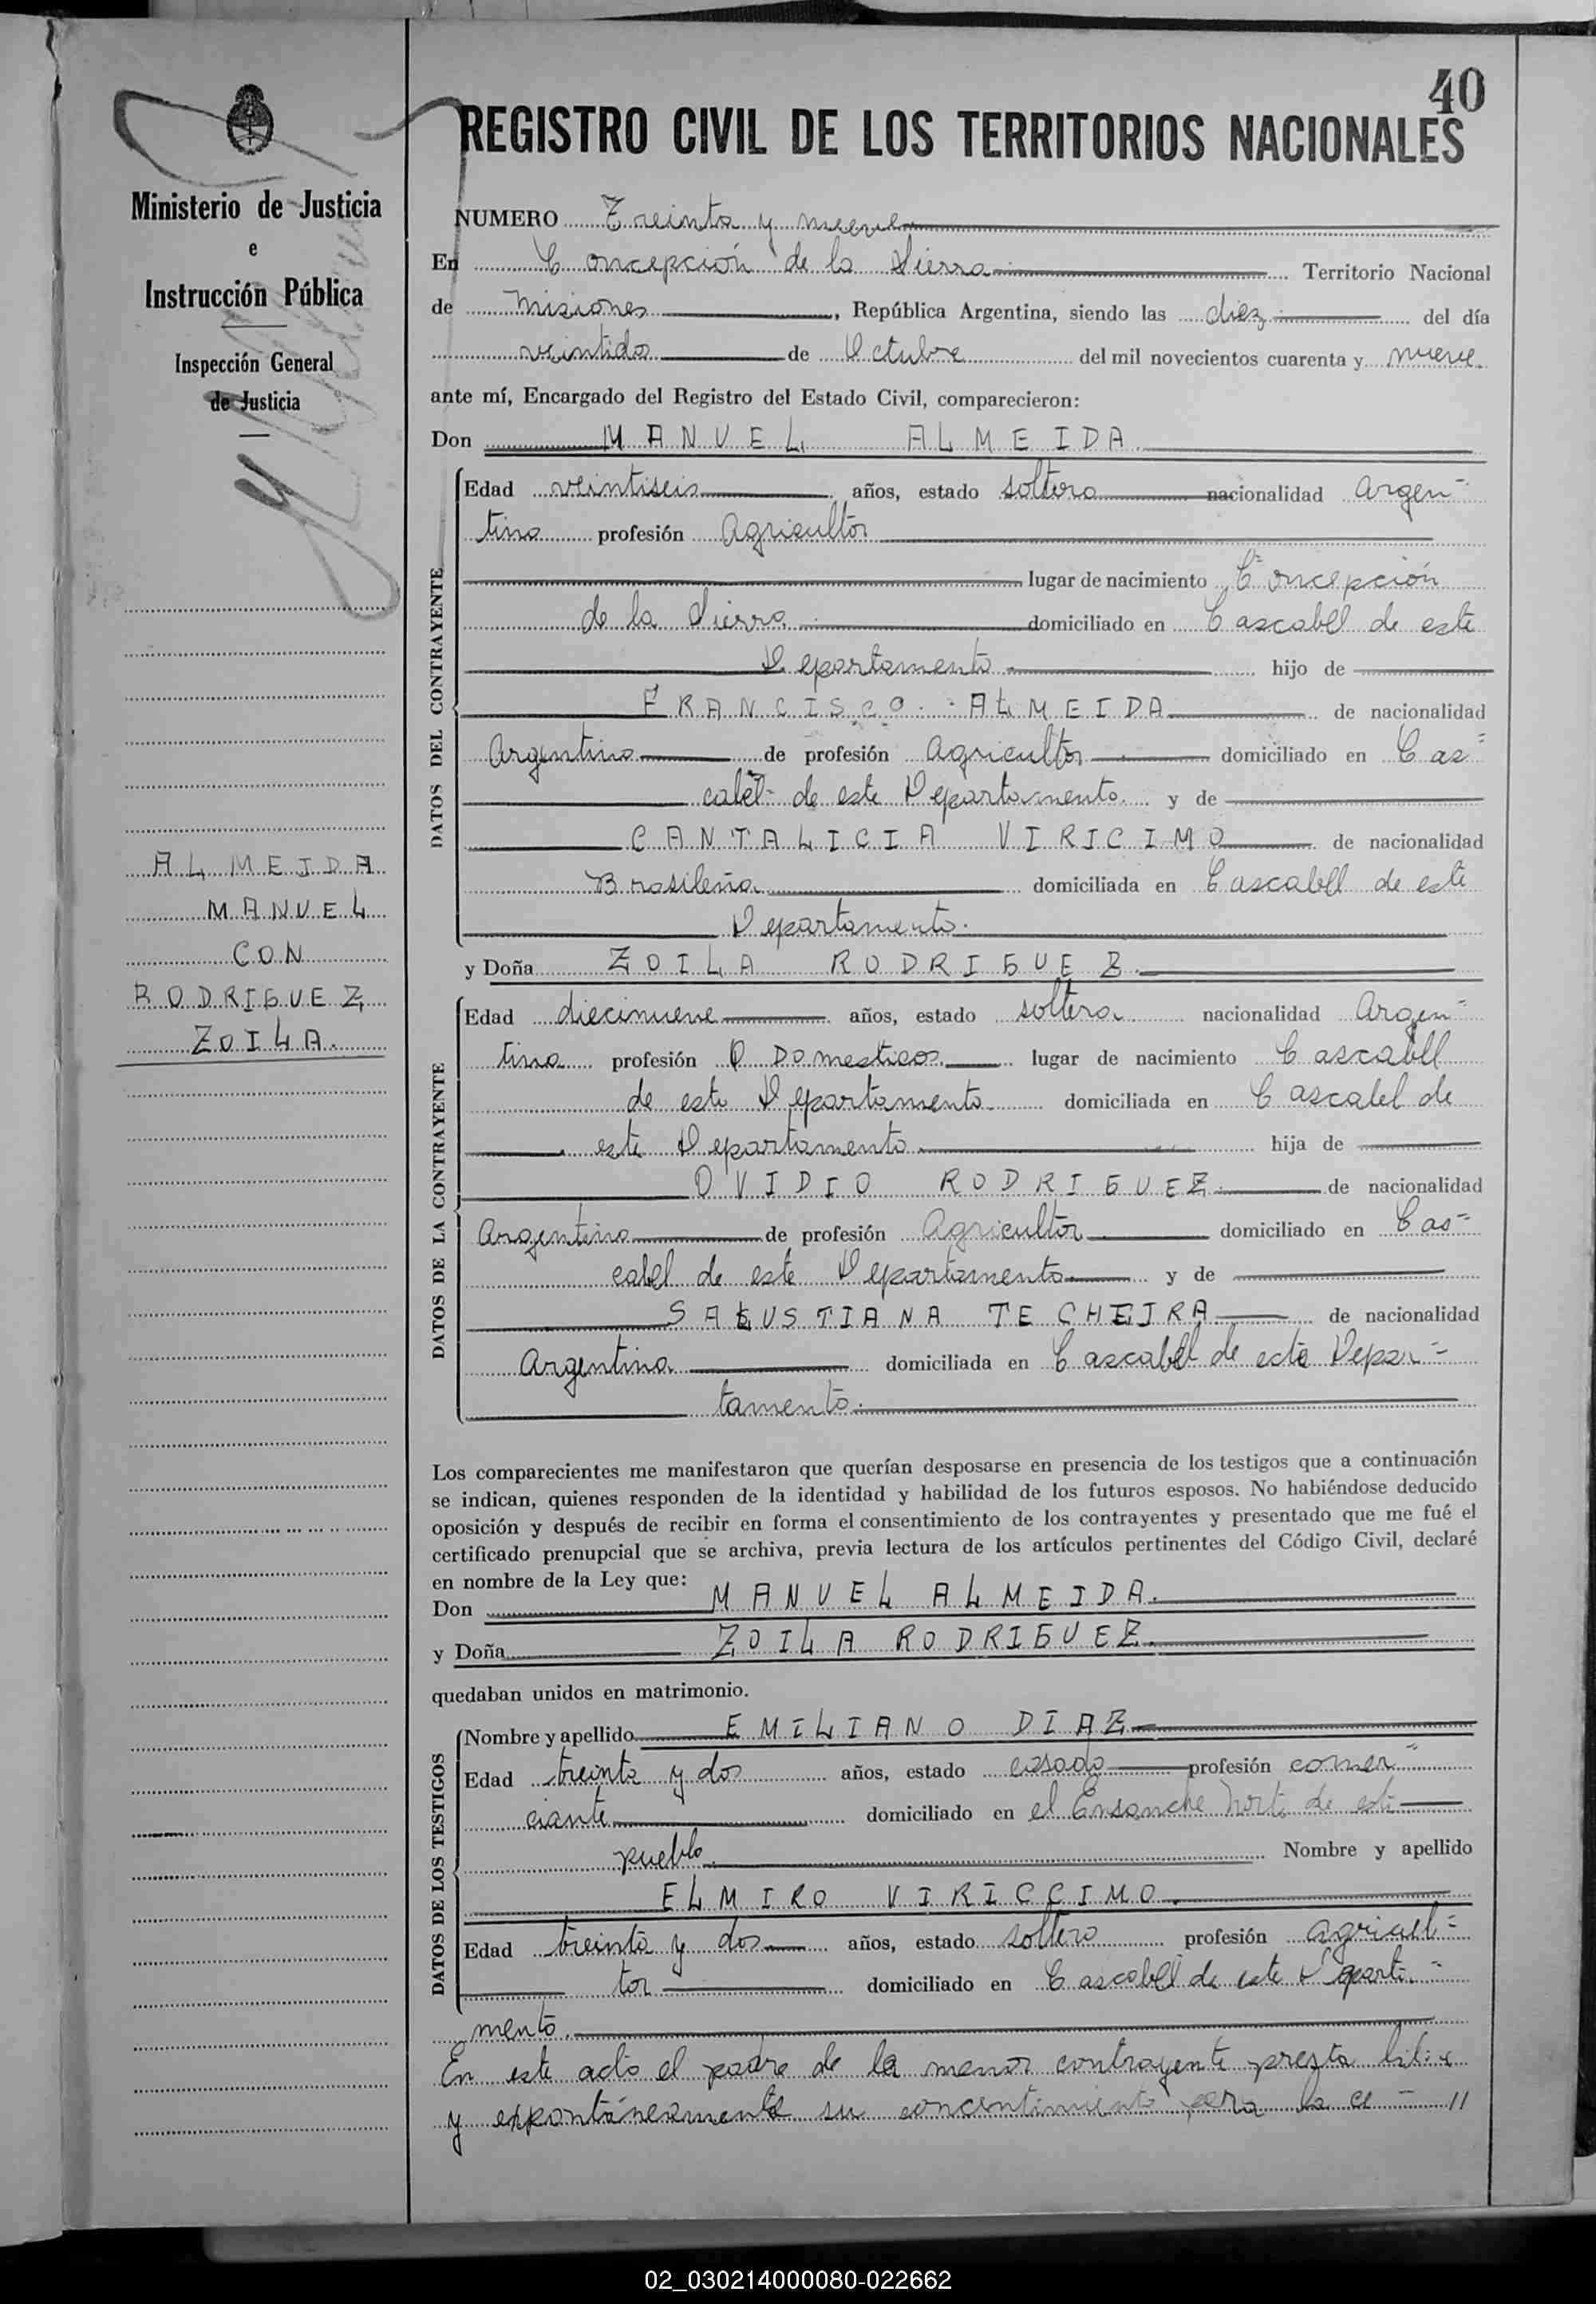 40
REGISTRO CIVIL DE LOS TERRITORIOS NACIONALES
Ministerio de Justicia
e
Instrucción Pública
Inspección General
de Justicia
ALMEIDA
MANUEL
CON
RODRIGUEZ
ZOILA.
NUMERO Treinta y nueve
En Concepción de la Sierra Territorio Nacional
de Misiones, República Argentina, siendo las diez del día
veintidos de Octubre del mil novecientos cuarenta y nueve.
ante mí, Encargado del Registro del Estado Civil, comparecieron:
Don MANUEL ALMEIDA.
DATOS DEL CONTRAYENTE
Edad veintiseis años, estado soltero nacionalidad Argen-
tino profesión Agricultor
lugar de nacimiento Concepción
de la Sierra domiciliado en Cascabel de este
Departamento hijo de
FRANCISCO ALMEIDA de nacionalidad
Argentino de profesión Agricultor domiciliado en Cas=
cabel de este Departamento y de
CANTALICIA VIRICIMO de nacionalidad
Brasileña domiciliada en Cascabel de este
Departamento.
y Doña ZOILA RODRIGUEZ.
DATOS DE LA CONTRAYENTE
Edad diecinueve años, estado soltera nacionalidad Argen=
tina profesión Q Domesticos. lugar de nacimiento Cascabel
de este Departamento domiciliada en Cascabel de
este Departamento hija de
OVIDIO RODRIGUEZ de nacionalidad
Argentino de profesión Agricultor domiciliado en Cas=
cabel de este Departamento y de
SALUSTIANA TECHEIRA de nacionalidad
Argentina domiciliada en Cascabel de este Depar=
tamento.
Los comparecientes me manifestaron que querían desposarse en presencia de los testigos que a continuación
se indican, quienes responden de la identidad y habilidad de los futuros esposos. No habiéndose deducido
oposición y después de recibir en forma el consentimiento de los contrayentes y presentado que me fué el
certificado prenupcial que se archiva, previa lectura de los artículos pertinentes del Código Civil, declaré
en nombre de la Ley que:
Don MANUEL ALMEIDA.
y Doña ZOILA RODRIGUEZ.
quedaban unidos en matrimonio.
DATOS DE LOS TESTIGOS
Nombre y apellido EMILIANO DIAZ
Edad treinta y dos años, estado casado profesión comer=
ciante domiciliado en el Ensanche Norte de este
pueblo. Nombre y apellido
ELMIRO VIRICCIMO.
Edad treinta y dos años, estado soltero profesión agricul=
tor domiciliado en Cascabel de este Departa=
mento.
En este acto el padre de la menor contrayente presta libre
y expontáneamente su concentimiento para la ce = //
02_030214000080-022662